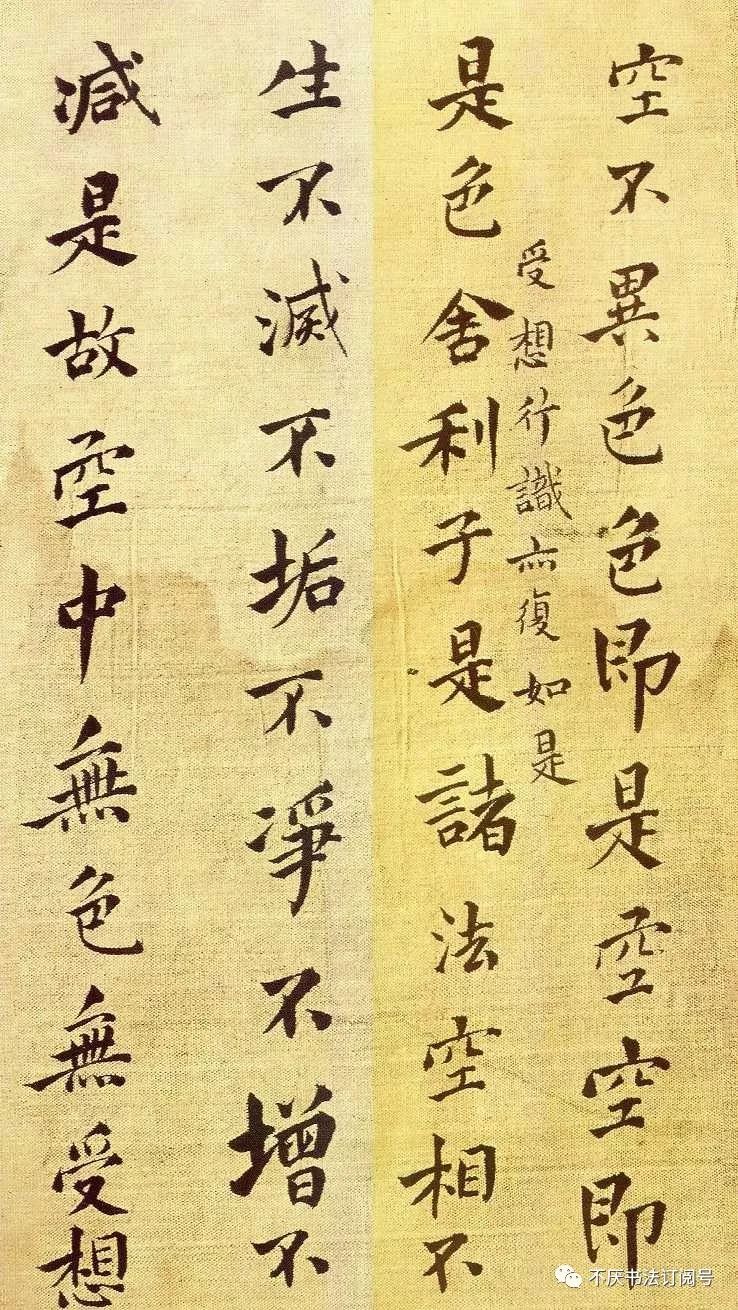 空不異色色即是空空即
受想行識亦復如是
是色舍利子是諸法空相不
生不滅不垢不淨不增不
減是故空中無色無受想
不厌书法订阅号